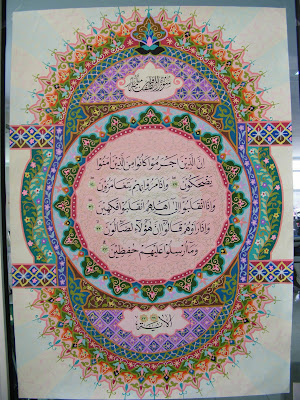 سورة المطففين
إِنَّ الَّذِينَ أَجْرَمُوا كَانُوا مِنَ الَّذِينَ آمَنُوا
يَضْحَكُونَ وَإِذَا مَرُّوا بِهِمْ يَتَغَامَزُونَ
وَإِذَا انْقَلَبُوا إِلَى أَهْلِهِمُ انْقَلَبُوا فَكِهِينَ
وَإِذَا رَأَوْهُمْ قَالُوا إِنَّ هَؤُلَاءِ لَضَالُّونَ
وَمَا أُرْسِلُوا عَلَيْهِمْ حَفِظِينَ
الآية